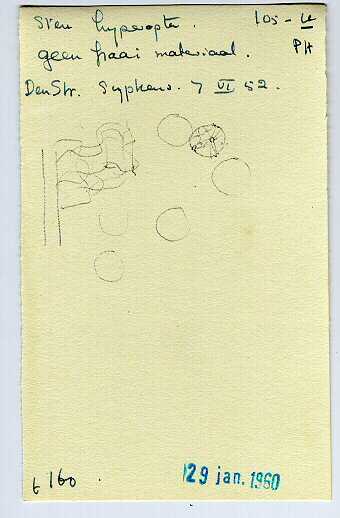 Sten hyperopta. 105-IV
geen fraai materiaal. PH
Den Str. Sypkens. 7 VI 52.
t 160.
29 jan. 1960